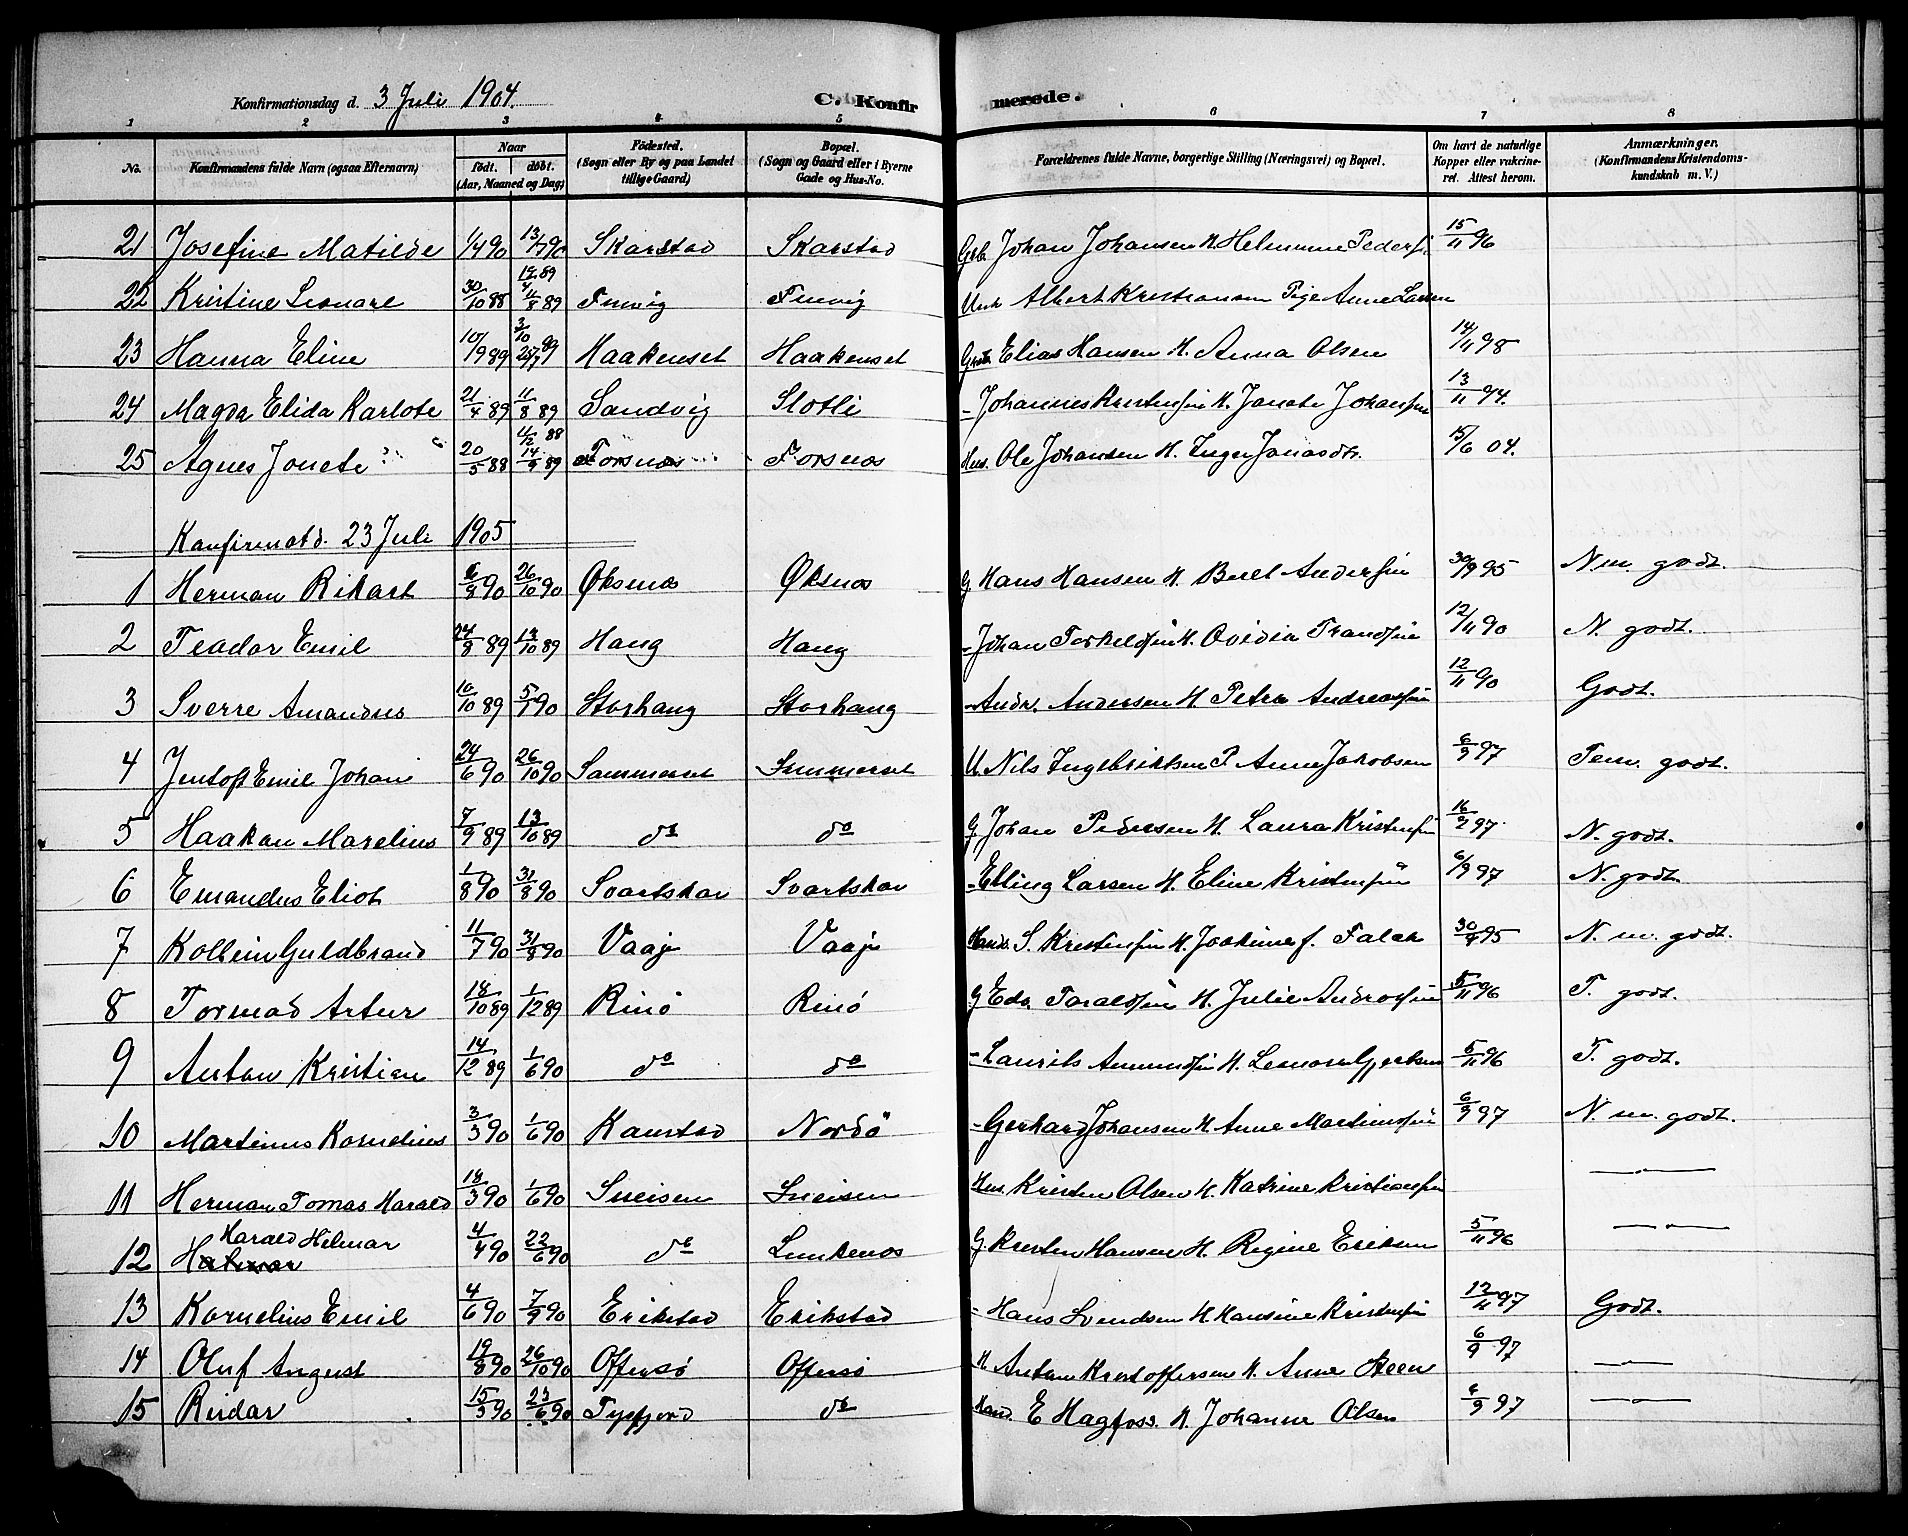 Konfirmationsdag d. 3 Juli 1904. C. Konfirmerede.
1 2 3 4 5 6 7 8
No. Konfirmandens fulde Navn (ogsaa Efternavn) Naar födt. döbt. (Aar, Maaned og Dag) Födested. (Sogn eller By og paa Landet tillige Gaard) Bopæl. (Sogn og Gaard eller i Byerne Gade og Hus-No. Forældrenes fulde Navne, borgerlige Stilling (Næringsvei) og Bopæl. Om havt de naturlige Kopper eller vakcineret. Attest herom. Anmærkninger. (Konfirmandens Kristendomskundskab m. V.)
21 Josefine Matilde 1/4 90 13/7 90 Skarstad Skarstad Gbr. Johan Johansen H. Helmine Peders 15/11 96
22 Kristine Leonare 30/10 88 11/8 89 Finvig Finvig Unk Albert Kristiansen Pige Anne Larsen
23 Hanna Eline 10/9 89 Haakenset Haakenset Elias Hansen H. Anna Olsen 14/11 98
24 Magda Elida Karlote 21/4 89 11/8 89 Sandvig Slotli - Johannes Kristensen H. Janete Johansen 13/11 94.
25 Agnes Jonete 20/5 88 14/9 89 Forsnæs Forsnæs Hus. Ole Johansen H. Inger Jonasdtr. 15/6 04.
Konfirmatd. 23 Juli 1905
1 Herman Rikart 6/8 90 26/10 90 Øksnæs Øksnæs G Hans Hansen H. Beret Andersen 30/9 95 N. m. godt.
2 Teodor Emil 24/8 89 13/10 89 Haug Haug - Johan Torkeldsen H. Ovidia Trandsen 12/11 90 N. godt.
3 Sverre Amandus 10/10 89 5/1 90 Storhaug Storhaug - Andr. Andersen H. Petra Andreassen 12/11 90 Godt.
4 Jentoft Emil Johan 24/6 90 26/10 90 Sommerset Sommerset U. Nils Ingebriktsen P. Anne Jakobsen 6/9 97 Tem. godt.
5 Haakon Marelius 7/9 89 13/10 89 do do G. Johan Pedersen H. Laura Kristensen 16/2 97. N. godt.
6 Emandus Eliot 1/8 90 31/8 90 Svartskar Svartskar - Elling Larsen H. Eline Kristensen 6/9 97 N. godt
7 Kolbein Guldbrand 11/7 90 31/8 90 Vaaje Vaaje Hand. S. Kristensen H. Joakime f. Falch 30/9 95 N. m. godt.
8 Tormod Artur 18/10 89 1/12 89 Rinö Rinö G Edv. Taraldsen H. Julie Andreassen 5/11 96 T. godt.
9 Anton Kristian 14/12 89 1/6 90 do do - Laurits Amundsen H. Leonore Gjertsen 5/11 96 T. godt.
10 Martinus Kornelius 3/3 90 1/6 90 Kanstad Nordö - Gerhard Johansen H. Anne Martinussen 6/9 97 N. m. godt.
11 Herman Tomas Harald 18/3 90 1/6 90 Sneisen Sneisen Hus Kristen Olsen H. Katrine Kristiansen —"—
12 Harald Hilmar 4/4 90 22/6 90 do G. Kristen Hansen H. Regine Eriksen 5/11 96 —"—
13 Kornelius Emil 4/6 90 7/9 90 Erikstad Erikstad - Hans Svendsen H. Hansine Kristensen 12/11 97 Godt.
14 Oluf August 19/8 90 26/10 90 Offersö Offersö H Anton Kristoffersen H. Anne Steen 6/9 97 —"—
15 Reidar 15/3 90 23/6 90 Tysfjord do Hand. E Hagfoss. H. Johanne Olsen 6/9 97 —"—